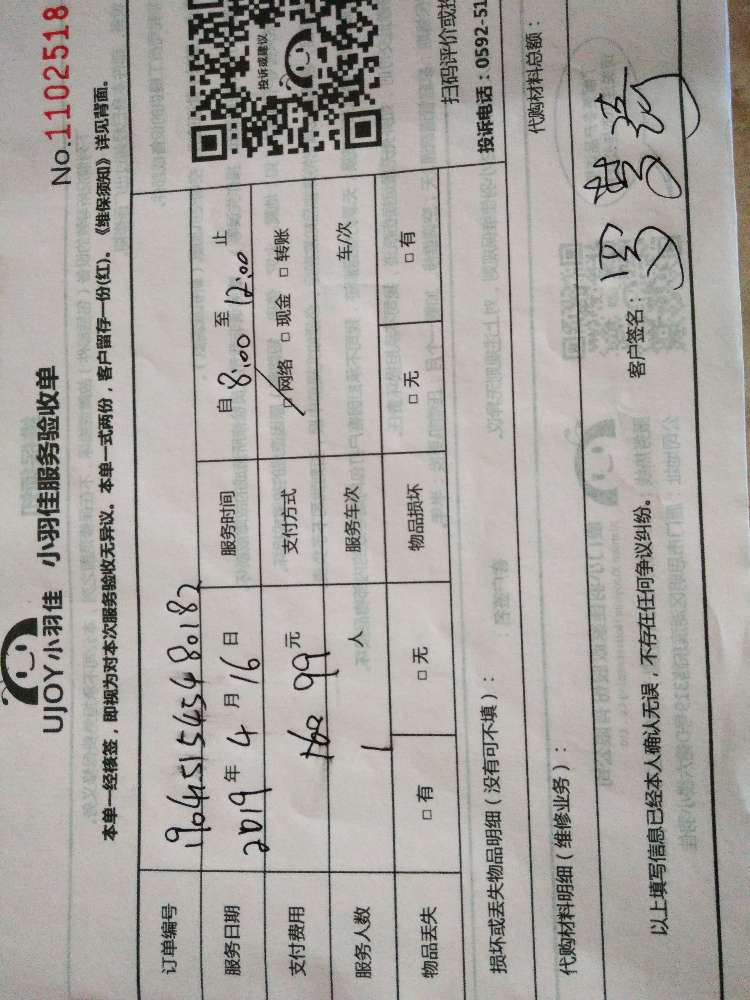 No.1102518
UJOY小羽佳 小羽佳服务验收单
本单一经核签，即视为对本次服务验收无异议。本单一式两份，客户留存一份(红)。《维保须知》详见背面。
订单编号
服务日期 2019 年 4 月 16 日 服务时间 自 8:00 至 12:00 止
支付费用 99 元 支付方式 □ 网络 □ 现金 □ 转账
服务人数 1 人 服务车次 车/次
物品丢失 □ 有 □ 无 物品损坏 □ 无 □ 有
投诉或建议
扫码评价或投
投诉电话：0592-51
损坏或丢失物品明细（没有可不填）：
代购材料明细（维修业务）： 代购材料总额：
以上填写信息已经本人确认无误，不存在任何争议纠纷。 客户签名：